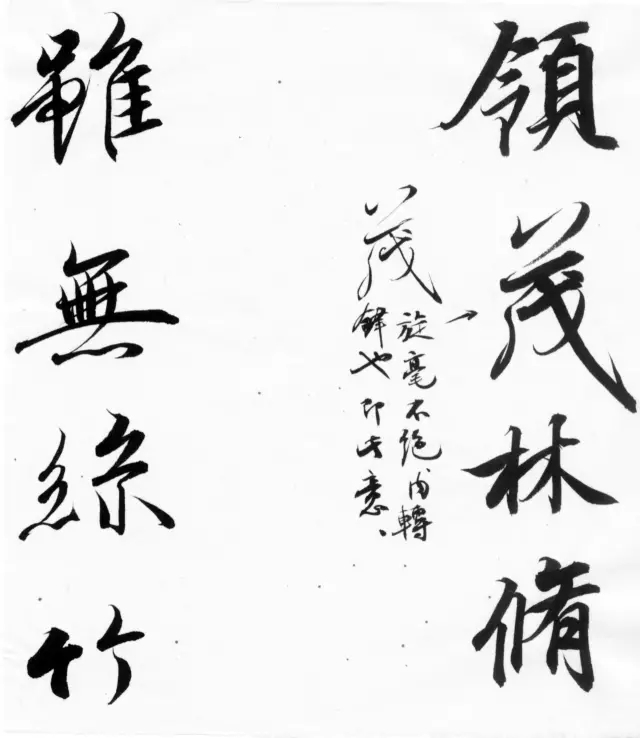 領茂林脩
茂
旋毫不絕內轉
鋒也即此意
雖無絲竹